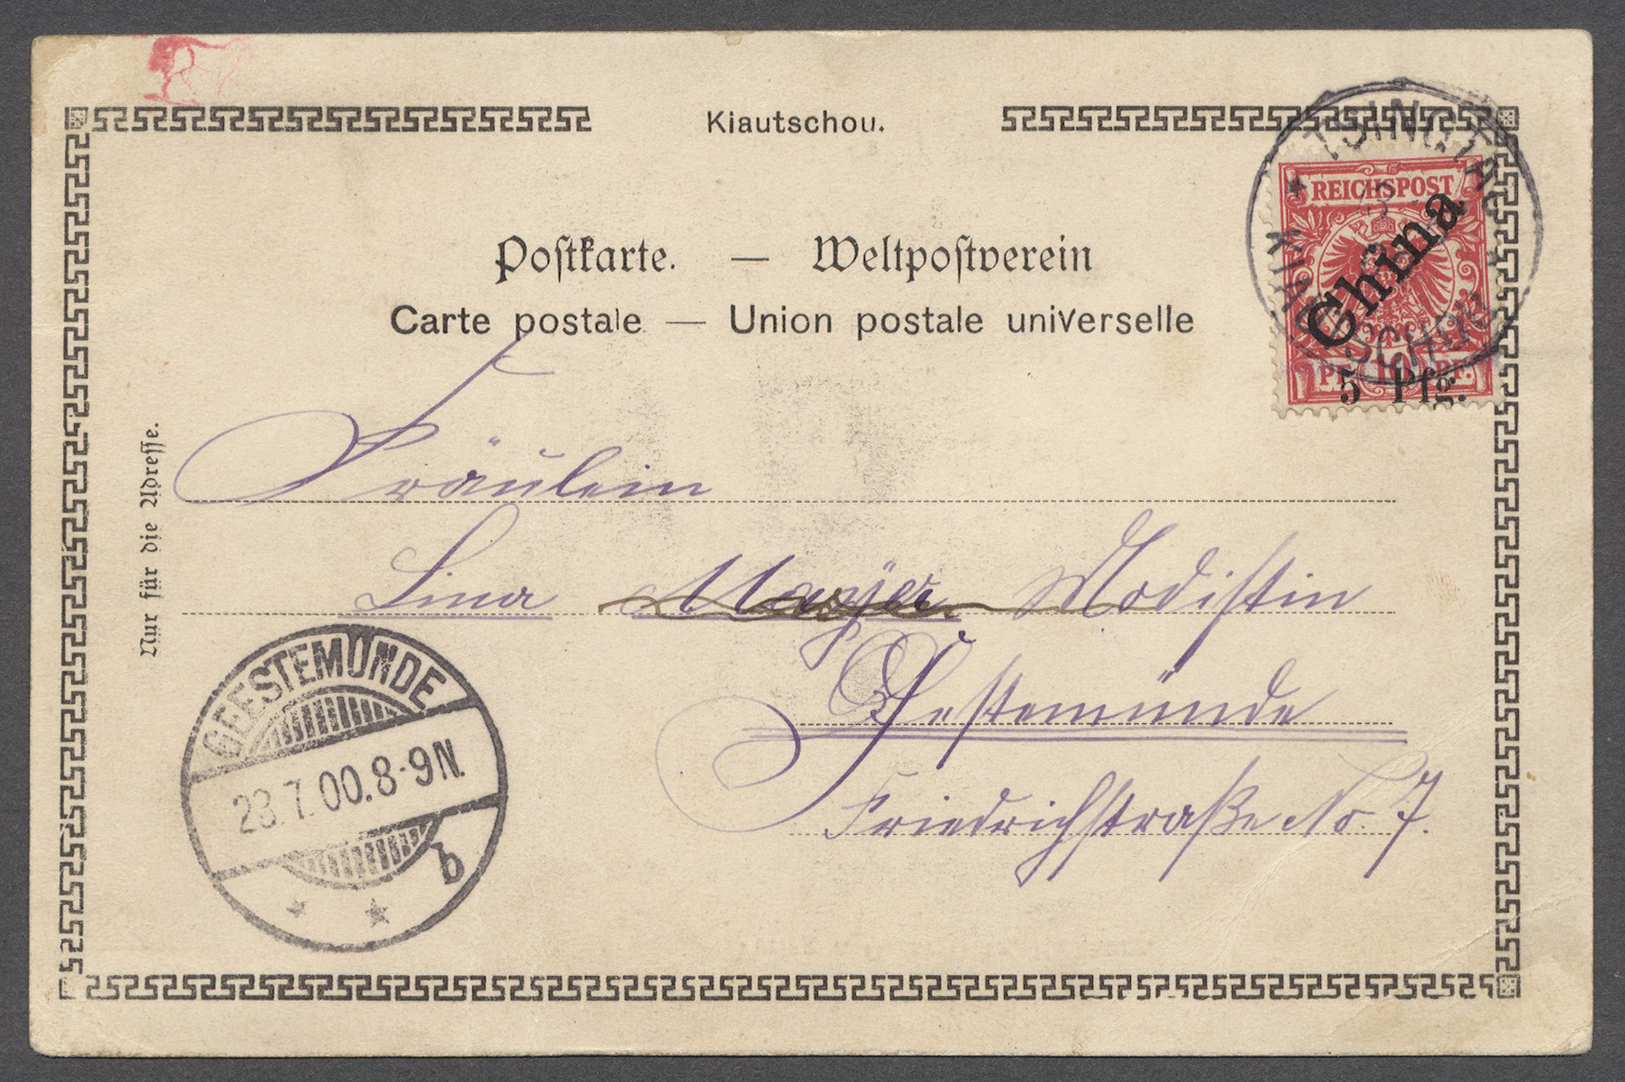 Kiautschou.
TSINGTAU
KIAUTSCHOU
REICHSPOST
China
10
5 Pfg.
Postkarte. — Weltpostverein
Carte postale — Union postale universelle
Nur für die Adresse.
Fräulein
Lina Mayer Modistin
Gestemünde
Friedrichstraße No. 7.
GEESTEMÜNDE
23.7.00.8-9N.
b